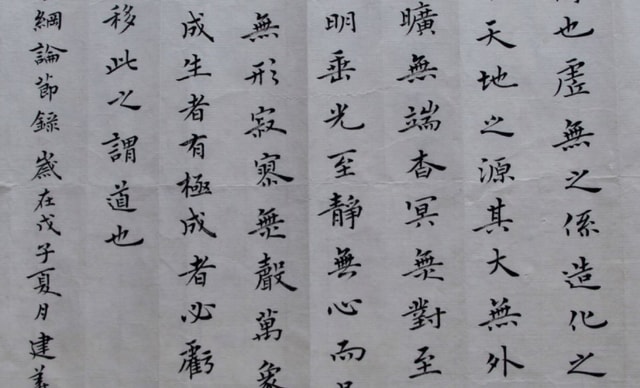 也虛無之係造化之
天地之源其大無外
曠無端杳冥無對至
明垂光至靜無心而
無形寂寥無聲萬象
成生者有極成者必虧
移此之謂道也
綱論節錄 歲在戊子夏月建